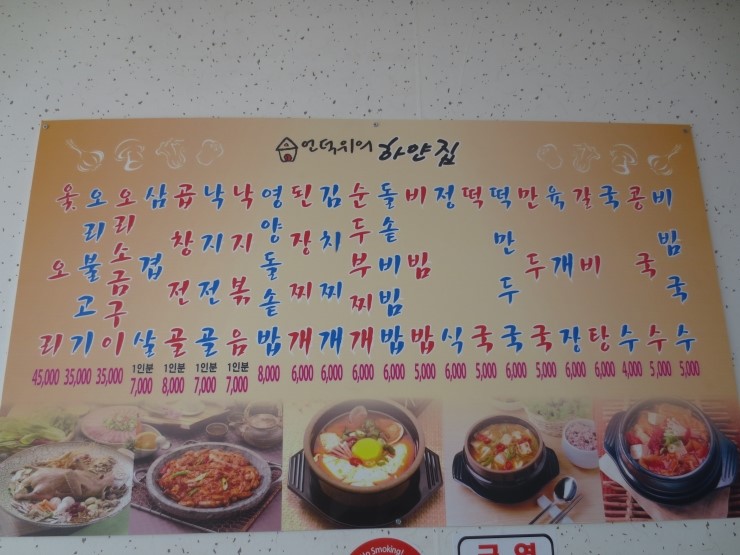 언덕위의 하얀집
옻오리
45,000
오리불고기
35,000
오리소금구이
35,000
삼겹살
1인분
7,000
곱창전골
1인분
8,000
낙지전골
1인분
7,000
낙지볶음
1인분
7,000
영양돌솥밥
8,000
된장찌개
6,000
김치찌개
6,000
순두부찌개
6,000
돌솥비빔밥
6,000
비빔밥
5,000
정식
6,000
떡국
5,000
떡만두국
6,000
만두국
5,000
육개장
6,000
갈비탕
6,000
국수
4,000
콩국수
5,000
비빔국수
5,000
Smoking!